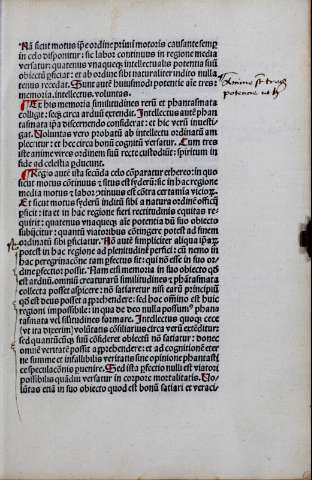 Nā sicut motus ip̄e ordine primi motoris causante semꝑ
in celo disponitur: sic labor continuus in regione media
versatur: quatenus vnaqueqꝫ intellectualis potentia suū
obiectū ꝑficiat: et ab ordine sibi naturaliter indito nulla
tenus recedat. Sunt autē huiusmodi potentie aīe tres:
memoria, intellectus, voluntas.
Ex his memoria similitudines rerū et phantasmata
colligit: seqꝫ circa arduū extendit. Intellectus autē phan
tasmata ip̄a discernendo considerat: et hic verū inuesti/
gat. Voluntas vero probatū ab intellectu ordinatū am
plectitur: et hec circa bonū cognitū versatur. Cum tres
iste anime vires ordinem suū recte custodiūt: spiritum in
fide ad celestia ꝑducunt.
Regio autē ista secūda celo cōparatur ethereo: in quo
sicut motus cōtinuus et situs est syderū: sic in hac regione
media motus et labor cōtinuus est cōtra certamīa viciorꝫ.
Et sicut motus syderū inditū sibi a natura ordinē officiū
ꝑficit: ita et in hac regione fieri rectitudinis equitas re-
quirit: quatenus vnaqueqꝫ aīe potentia dū suo obiecto
subijcitur: quantū viatoribus cōtingere potest ad finem
ordinatū sibi ꝑficiatur. Nō autē simpliciter aliqua ip̄aꝝ
potest in hac regione ad plenitudinē perfici: cū nemo in
hac peregrinacōne tam ꝑfectus sit: qui nō esse in suo or/
dine ꝑfectior possit. Nam etsi memoria in suo obiecto qd̄
est arduū, omniū creaturarū similitudines et phātasmata
collecta posset apprehendere: nō satiaretur nisi earū principiū
qd̄ est deus posset apprehendere: sed hoc omnino est huic
regioni impossibile: in qua de deo nulla possum9 phan
tasmata vel silitudines formare. Intellectus quoqꝫ cece
(vt ita dixerim) volūtatis cōsiliarius circa verū extēditur:
sed quantūcūqꝫ suū cōsideret obiectū nō satiatur: donec
omnē veritatē possit apprehendere: et ad cognitionē eter
ne summe et infallibilis veritatis sine opinione phantasti
ce speculacōnis ꝑuenire. Sed ista ꝑfectio nulli est viatori
possibilis quādiu versatur in corpore mortalitatis. Vo/
luntas etiā in suo obiecto quod est bonū satiari et veraci/
Anime sūt tres
potencie vt h